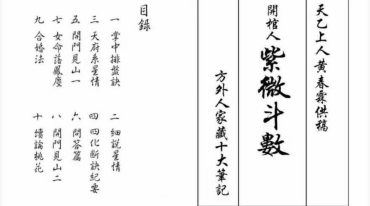 天乙上人黃春霖供稿
開棺人 紫微斗數
方外人家藏十大筆記
目錄
一 掌中排盤訣
二 細說星情
三 天府系星情
四 四化斷訣紀要
五 開門見山一
六 問答篇
七 女命落鳳塵
八 開門見山二
九 合婚法
十 續論桃花